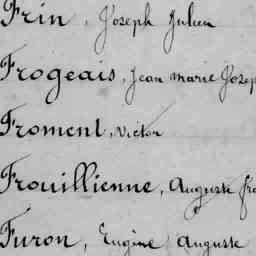 Frin, Joseph Julien
Frogeais, Jean marie Josep
Froment, Victor
Frouillienne, Auguste fra
Furon, Eugène Auguste